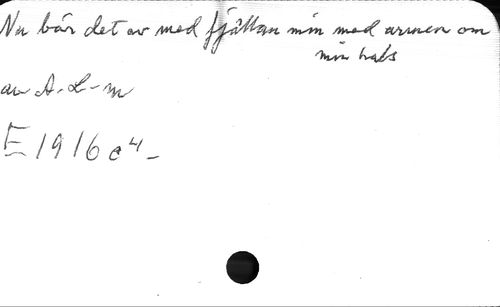 Nu bär det av med fjällan min med armen om
min hals
av A-L-m
E 1916 c 4-